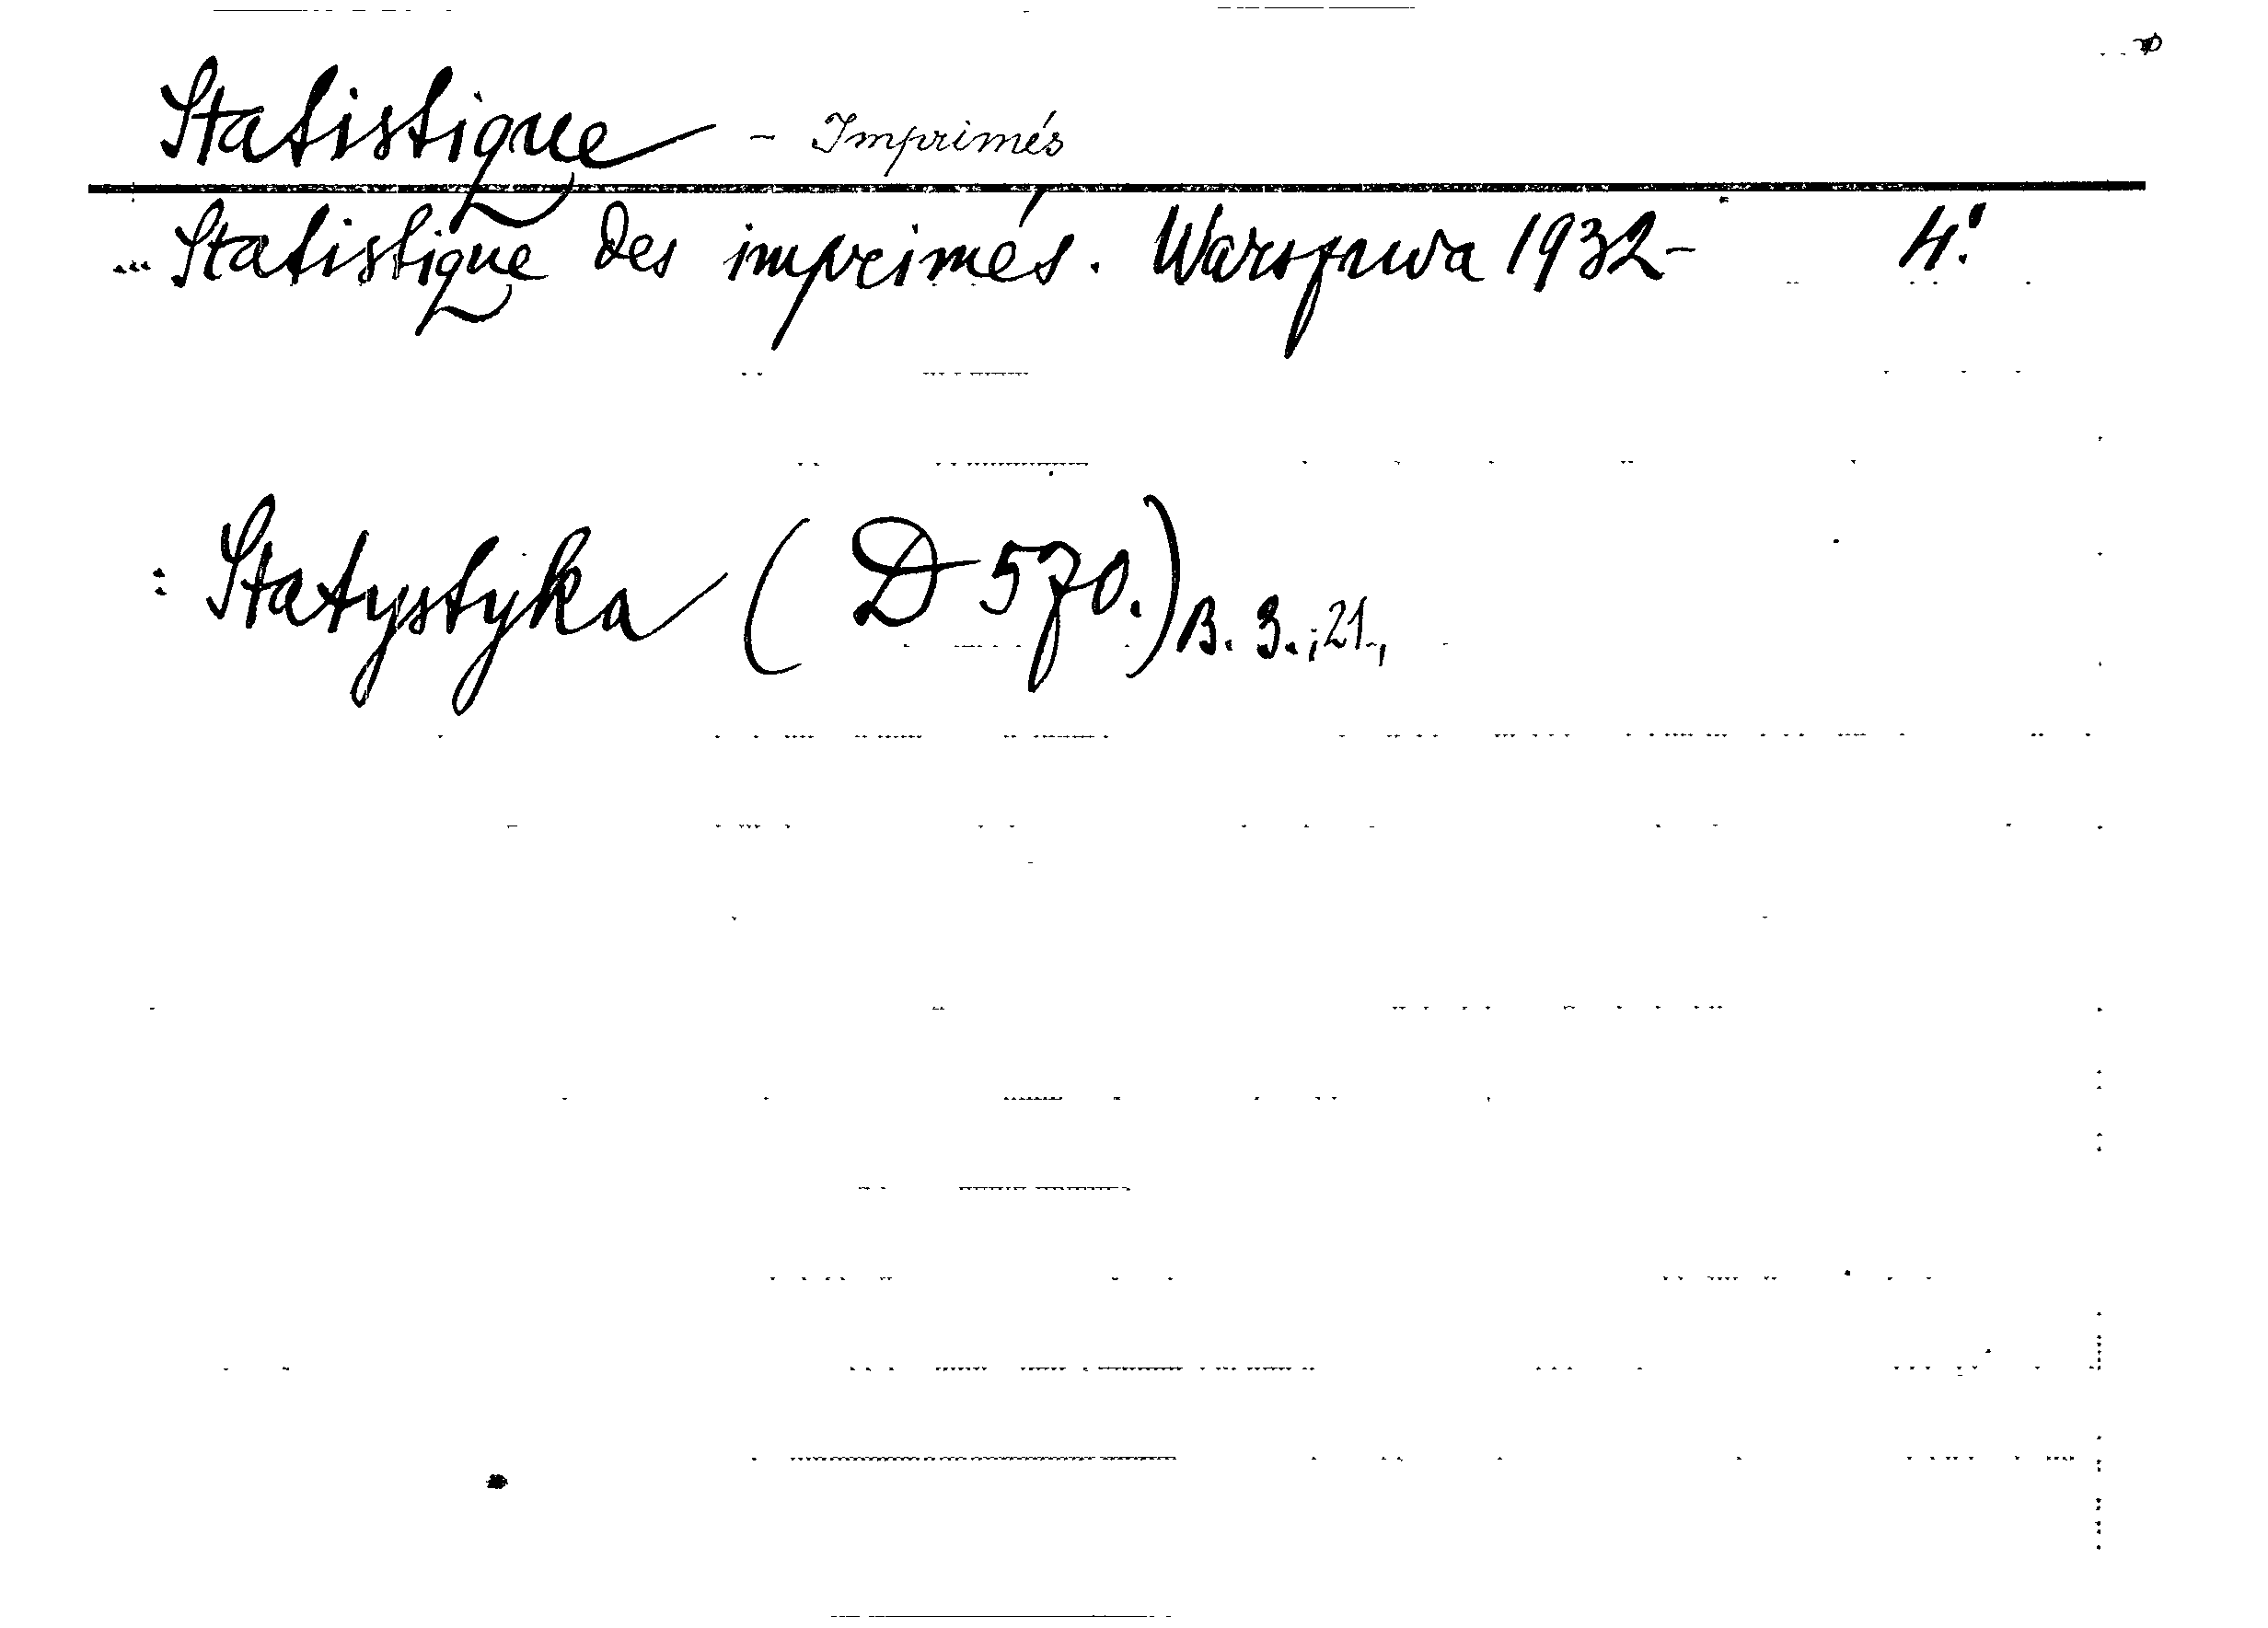 Statistique - Imprimés
... Statistique des imprimés. Warszawa 1932- 4°.
: Statystyka (D 570.) B. 3.; 21.,